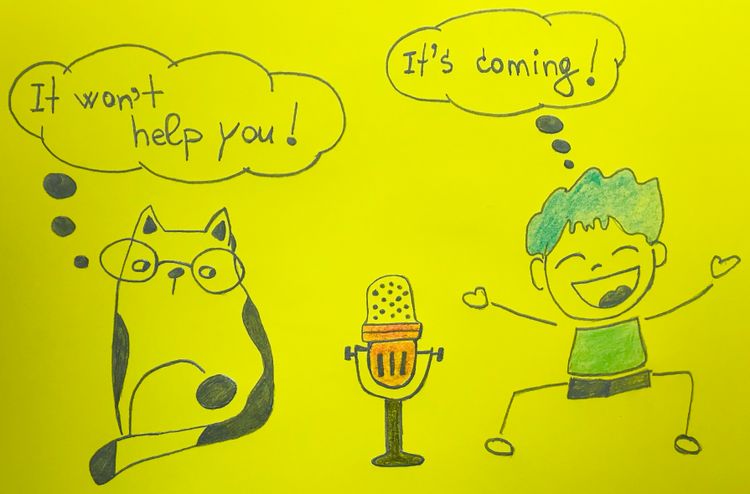 It won't
help you!
It's coming!